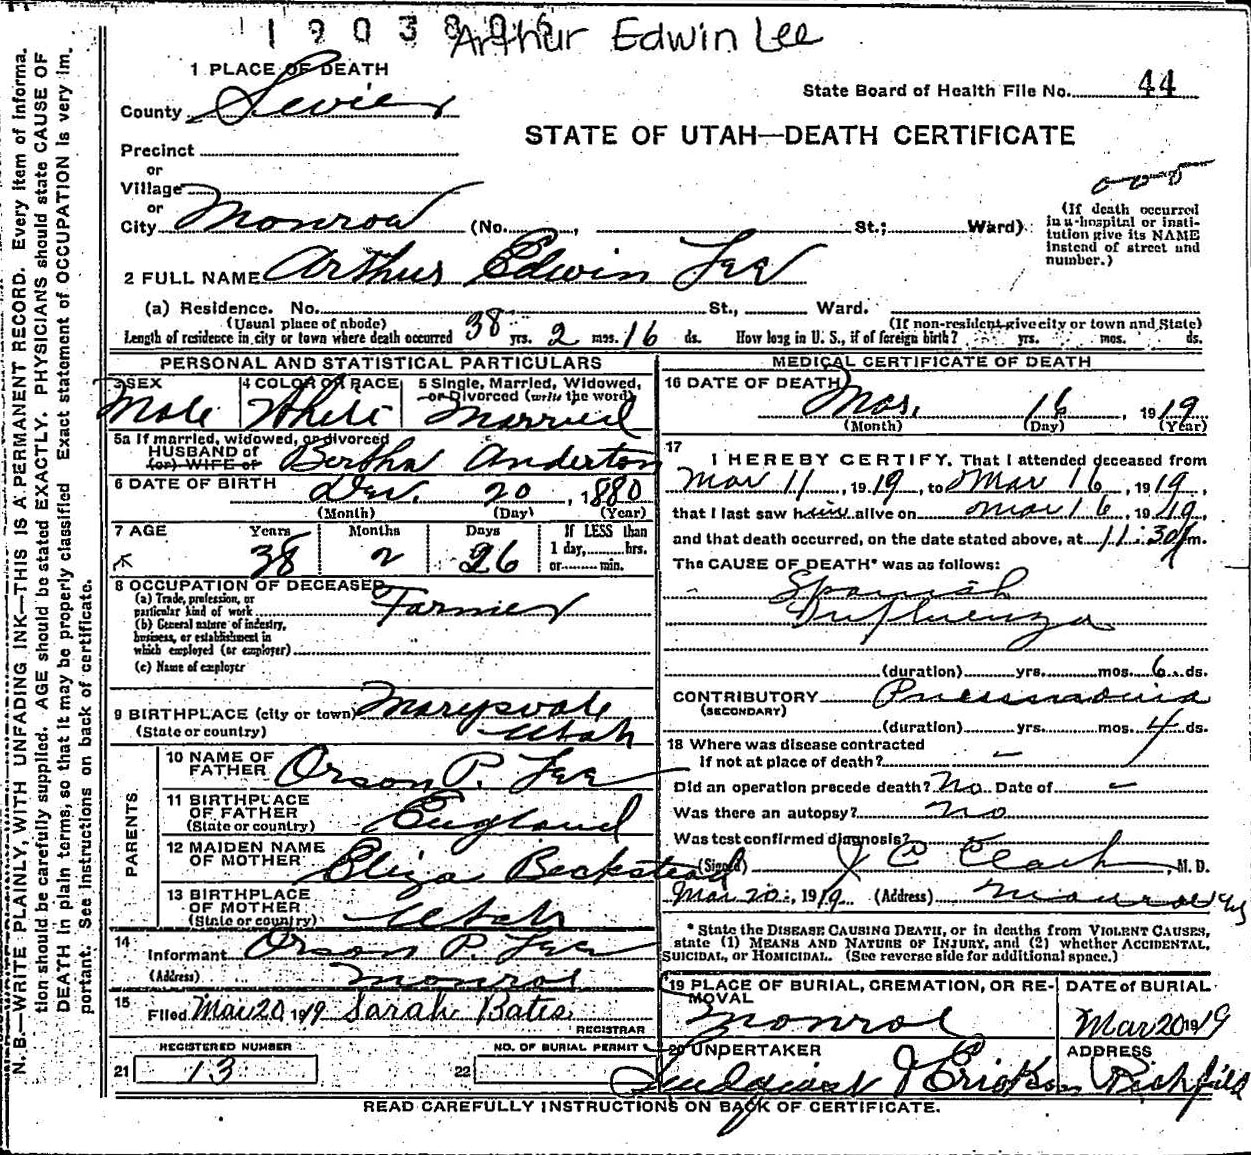 1903806
Arthur Edwin Lee
1 PLACE OF DEATH
State Board of Health File No. 44
County Sevier
STATE OF UTAH—DEATH CERTIFICATE
Precinct
or
Village
or
City Monroe (No. , St.; Ward)
(If death occurred
in a hospital or insti-
tution give its NAME
instead of street and
number.)
2 FULL NAME Arthur Edwin Lee
(a) Residence. No. St., Ward.
(Usual place of abode) (If non-resident give city or town and State)
Length of residence in city or town where death occurred 38 yrs. 2 mos. 16 ds. How long in U. S., if of foreign birth? yrs. mos. ds.
PERSONAL AND STATISTICAL PARTICULARS
3 SEX
Male
4 COLOR OR RACE
White
5 Single, Married, Widowed,
or Divorced (write the word)
Married
5a If married, widowed, or divorced
HUSBAND of
(or) WIFE of
Bertha Anderton
6 DATE OF BIRTH Dec. 20, 1880
(Month) (Day) (Year)
7 AGE Years Months Days If LESS than
38 2 26 1 day, hrs.
or min.
8 OCCUPATION OF DECEASED
(a) Trade, profession, or
particular kind of work Farmer
(b) General nature of industry,
business, or establishment in
which employed (or employer)
(c) Name of employer
9 BIRTHPLACE (city or town) Marysvale
(State or country) Utah
PARENTS
10 NAME OF
FATHER Orson P. Lee
11 BIRTHPLACE
OF FATHER
(State or country) England
12 MAIDEN NAME
OF MOTHER Eliza Beckstead
13 BIRTHPLACE
OF MOTHER
(State or country) Utah
14
Informant Orson P. Lee
(Address) Monroe
15
Filed Mar 20 1919 Sarah Bates
REGISTRAR
REGISTERED NUMBER
21 13
NO. OF BURIAL PERMIT
22
MEDICAL CERTIFICATE OF DEATH
16 DATE OF DEATH
Mar. 16, 1919
(Month) (Day) (Year)
17
I HEREBY CERTIFY, That I attended deceased from
Mar 11, 1919, to Mar 16, 1919,
that I last saw him alive on Mar 16, 1919,
and that death occurred, on the date stated above, at 11:30 m.
The CAUSE OF DEATH* was as follows:
Spanish
Influenza
(duration) yrs. mos. 6 ds.
CONTRIBUTORY Pneumonia
(SECONDARY)
(duration) yrs. mos. 4 ds.
18 Where was disease contracted
If not at place of death? –
Did an operation precede death? No Date of –
Was there an autopsy? no
Was test confirmed diagnosis?
(Signed) , M. D.
Mar 20, 1919 (Address) Monroe
* State the DISEASE CAUSING DEATH, or in deaths from VIOLENT CAUSES,
state (1) MEANS AND NATURE OF INJURY, and (2) whether ACCIDENTAL,
SUICIDAL, or HOMICIDAL. (See reverse side for additional space.)
19 PLACE OF BURIAL, CREMATION, OR RE-
MOVAL
Monroe
DATE of BURIAL
Mar 20 1919
20 UNDERTAKER
ADDRESS
Richfield
READ CAREFULLY INSTRUCTIONS ON BACK OF CERTIFICATE.
N. B.—WRITE PLAINLY, WITH UNFADING INK—THIS IS A PERMANENT RECORD. Every item of informa-
tion should be carefully supplied. AGE should be stated EXACTLY. PHYSICIANS should state CAUSE OF
DEATH in plain terms, so that it may be properly classified. Exact statement of OCCUPATION is very im-
portant. See instructions on back of certificate.